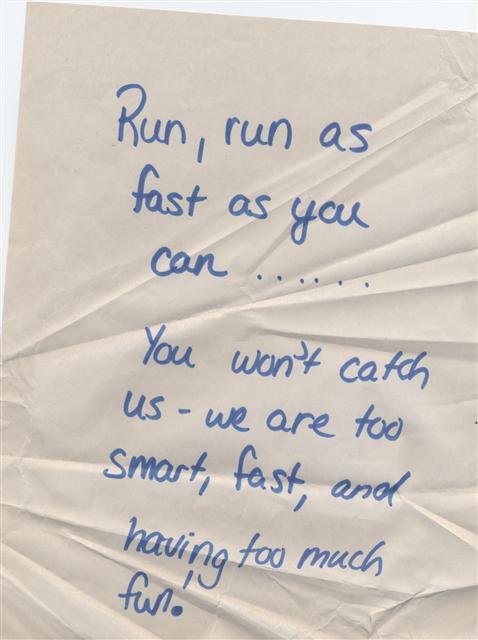 Run, run as
fast as you
can ......
You won't catch
us - we are too
smart, fast, and
having too much
fun.